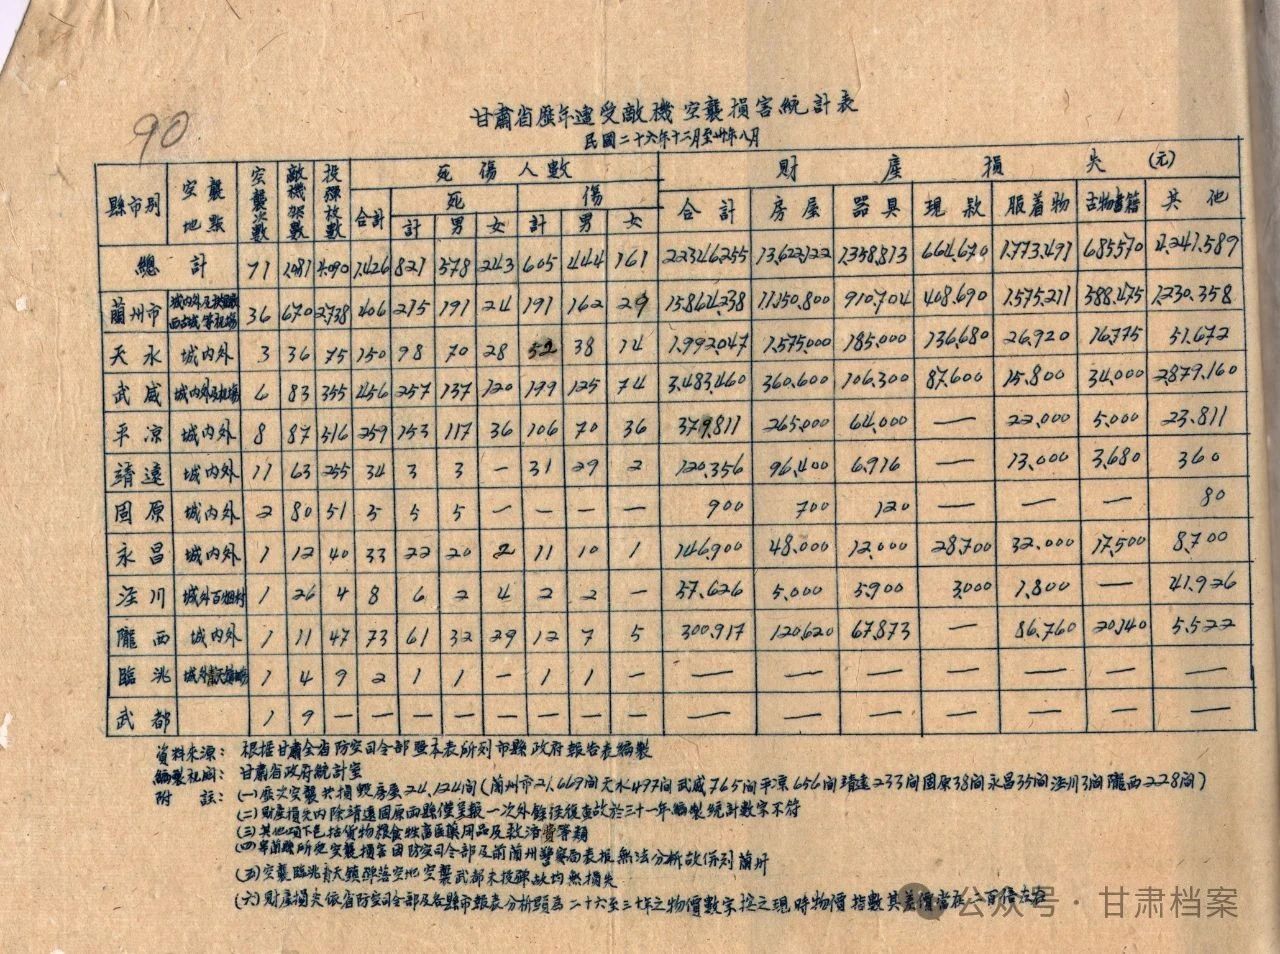 90
甘肅省歷年遭受敵機空襲損害統計表
民國二十六年十二月至卅年八月
縣市別 空襲地點 空襲次數 敵機架數 投彈枚數 死傷人數 財產損失(元)
合計 死 傷 合計 房屋 器具 現款 服着物 古物書籍 其他
計 男 女 計 男 女
總計 71 1,081 4,090 1,426 821 578 243 605 444 161 22,346,255 13,622,122 1,358,813 664,670 1,773,491 685,570 4,241,589
蘭州市 36 670 2,738 406 215 191 24 191 162 29 15,864,238 11,150,800 910,704 408,690 1,575,211 588,475 1,230,358
天水 城內外 3 36 75 150 98 70 28 52 38 14 1,992,047 1,575,000 185,000 136,680 26,920 16,775 51,672
武威 城內外及機場 6 83 355 456 257 137 120 199 125 74 3,483,460 360,600 106,300 87,600 15,800 34,000 2,879,160
平凉 城內外 8 87 516 259 153 117 36 106 70 36 379,811 265,000 64,000 — 22,000 5,000 23,811
靖遠 城內外 11 63 255 34 3 3 — 31 29 2 120,356 96,400 6,916 — 13,000 3,680 360
固原 城內外 2 80 51 5 5 5 — — — — 900 700 120 — — — 80
永昌 城內外 1 12 40 33 22 20 2 11 10 1 146,900 48,000 12,000 28,700 32,000 17,500 8,700
涇川 城外百烟村 1 26 4 8 6 2 4 2 2 — 57,626 5,000 5,900 3,000 1,800 — 41,926
隴西 城內外 1 11 47 73 61 32 29 12 7 5 300,917 120,620 67,873 — 86,760 20,140 5,522
臨洮 1 4 9 2 1 1 — 1 1 — — — — — — — —
武都 1 9 — — — — — — — — — — — — — — —
資料來源：根據甘肅全省防空司令部暨本表所列市縣政府報告表編製
編製機關：甘肅省政府統計室
附註：(一)歷次空襲共損毀房屋24,124間(蘭州市21,669間天水497間武威765間平凉656間靖遠233間固原38間永昌35間涇川3間隴西228間)
(二)財產損失內除靖遠固原兩縣僅呈報一次外餘徑復查故於三十一年編製統計數字不符
(三)其他項下包括貨物粮食牲畜醫藥用品及救濟費等類
(四)皐蘭縣所受空襲損害因防空司令部及前蘭州警察局表報無法分析故併列蘭州
(五)空襲臨洮青天鎮彈落空地空襲武都未投彈故均無損失
(六)財產損失依省防空司令部及各縣市報表分析題為二十六至三十年之物價數字按之現時物價指數其差價當在二百倍左右
公众号 · 甘肃档案